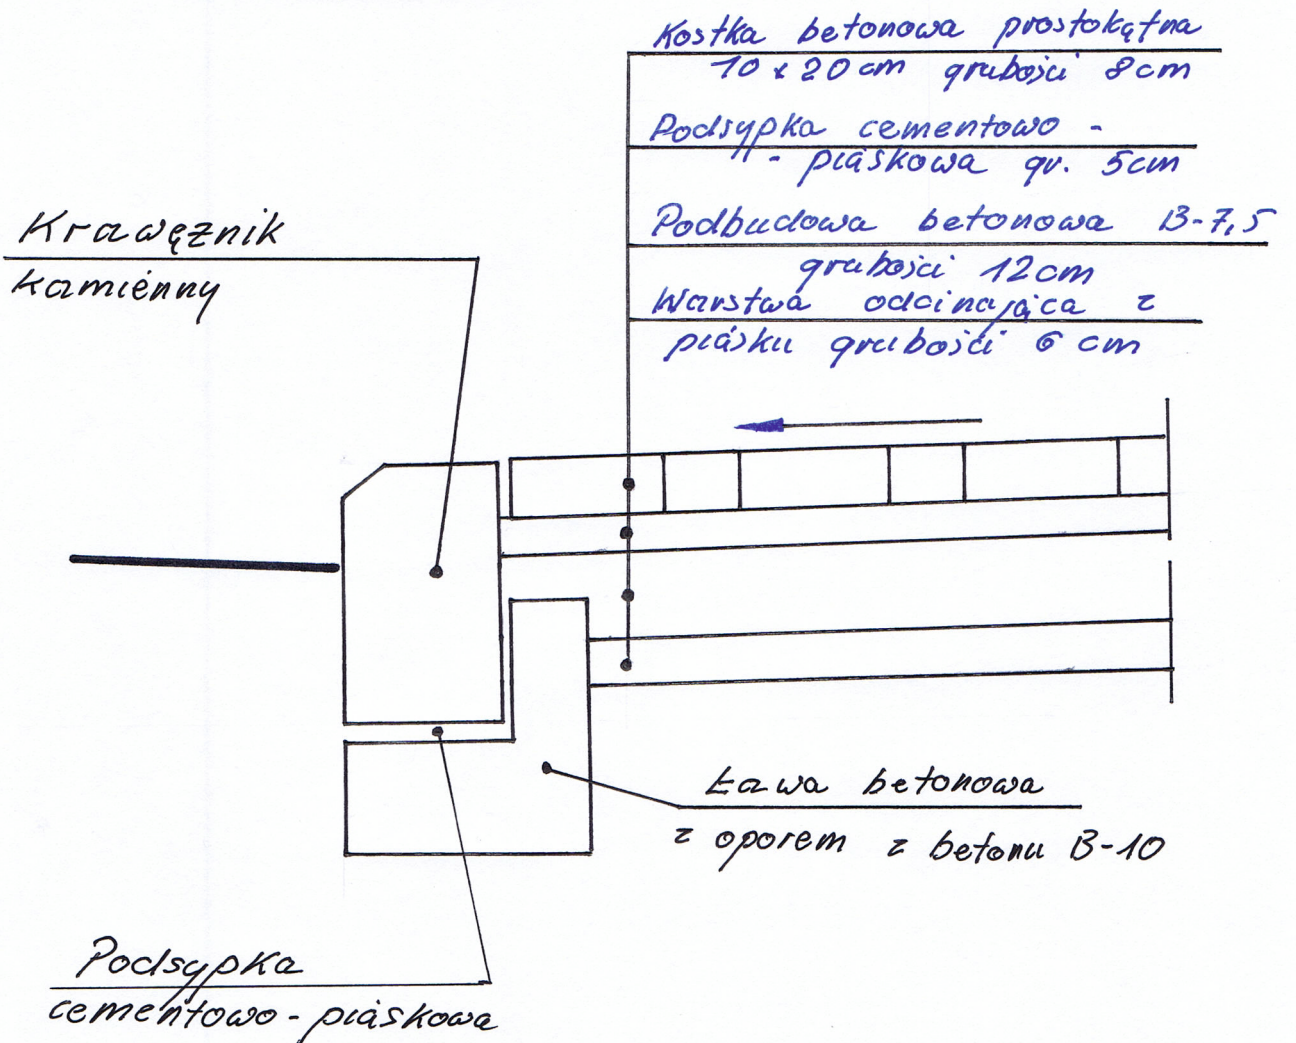 Kostka betonowa prostokątna
10 x 20 cm grubości 8 cm
Podsypka cementowo -
- piaskowa gr. 5cm
Podbudowa betonowa B-7,5
grubości 12cm
Warstwa odcinająca z
piasku grubości 6 cm
Krawężnik
kamienny
Ława betonowa
z oporem z betonu B-10
Podsypka
cementowo - piaskowa